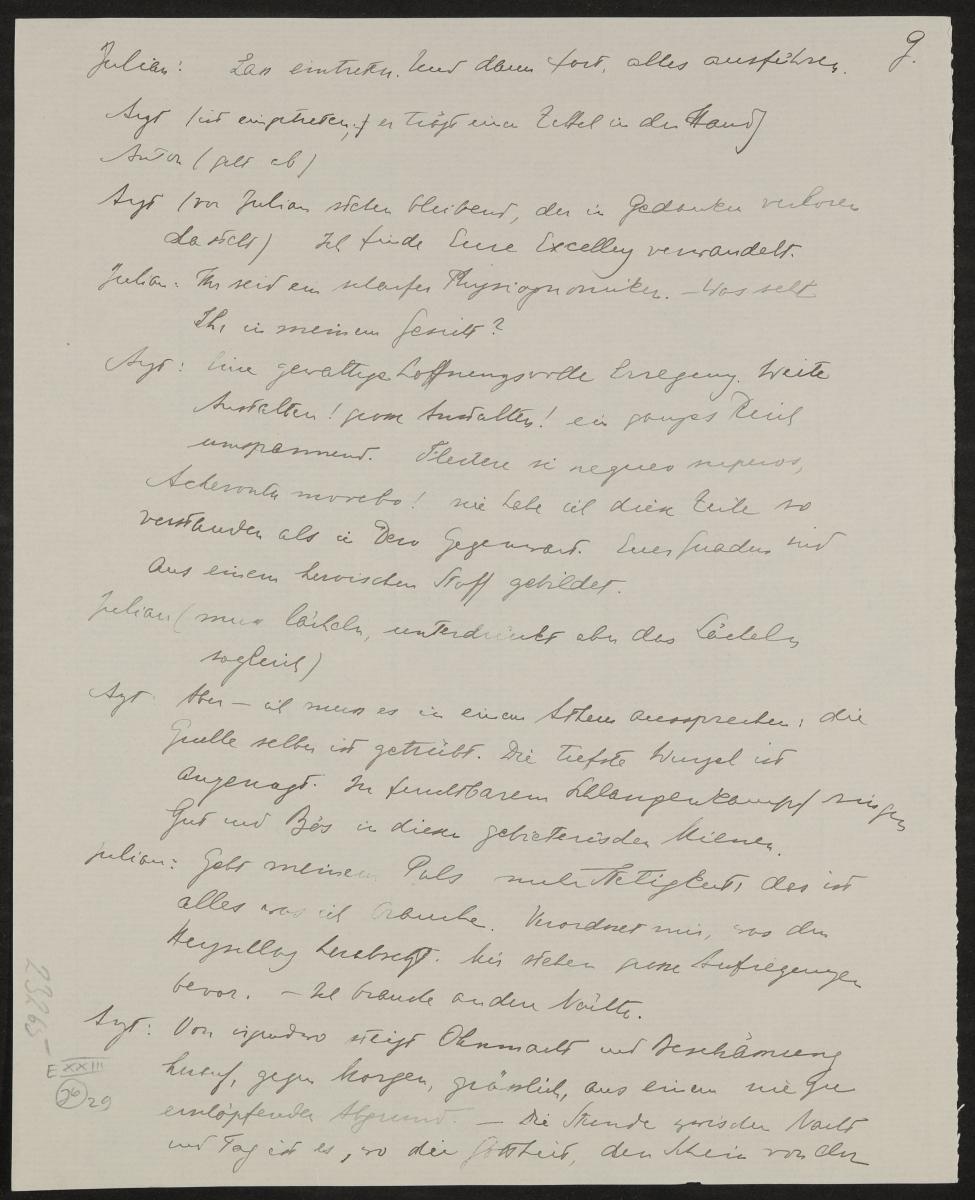 9.
Julian: Lass eintreten. Und dann fort, alles ausführen.
Arzt (ist eingetreten, er trägt einen Zettel in der Hand)
Anton (geht ab)
Arzt (vor Julian stehen bleibend, der in Gedanken verloren
dasteht) Ich finde Eure Excellenz verwandelt.
Julian: Ihr seid ein scharfer Physiognomiker. – Was seht
Ihr in meinem Gesicht?
Arzt: Eine gewaltige hoffnungsvolle Erregung. Weite
Anstalten! grosse Anstalten! ein ganzes Reich
umspannend. Flectere si nequeo superos,
Acheronta movebo! nie habe ich diese Zeile so
verstanden als in Dero Gegenwart. Euer Gnaden sind
aus einem heroischen Stoff gebildet.
Julian (muss lächeln, unterdrückt aber das Lächeln
sogleich)
Arzt Aber – ich muss es in einem Athem aussprechen: die
Quelle selber ist getrübt. Die tiefste Wurzel ist
angenagt. In furchtbarem Schlangenkampf ringen
Gut und Bös in diesen gebieterischen Mienen.
Julian: Gebt meinem Puls mehr Stetigkeit, das ist
alles was ich brauche. Verordnet mir, was den
Herzschlag herabsetzt. Mir stehen grosse Aufregungen
bevor. – Ich brauche andere Nächte.
Arzt: Von irgendwo steigt Ohnmacht und Beschämung
herauf, gegen Morgen, grässlich, aus einem nie zu
erschöpfenden Abgrund. – Die Stunde zwischen Nacht
und Tag ist es, wo die Gottheit, den Schein von der
23265 –
E XXIII
26 29